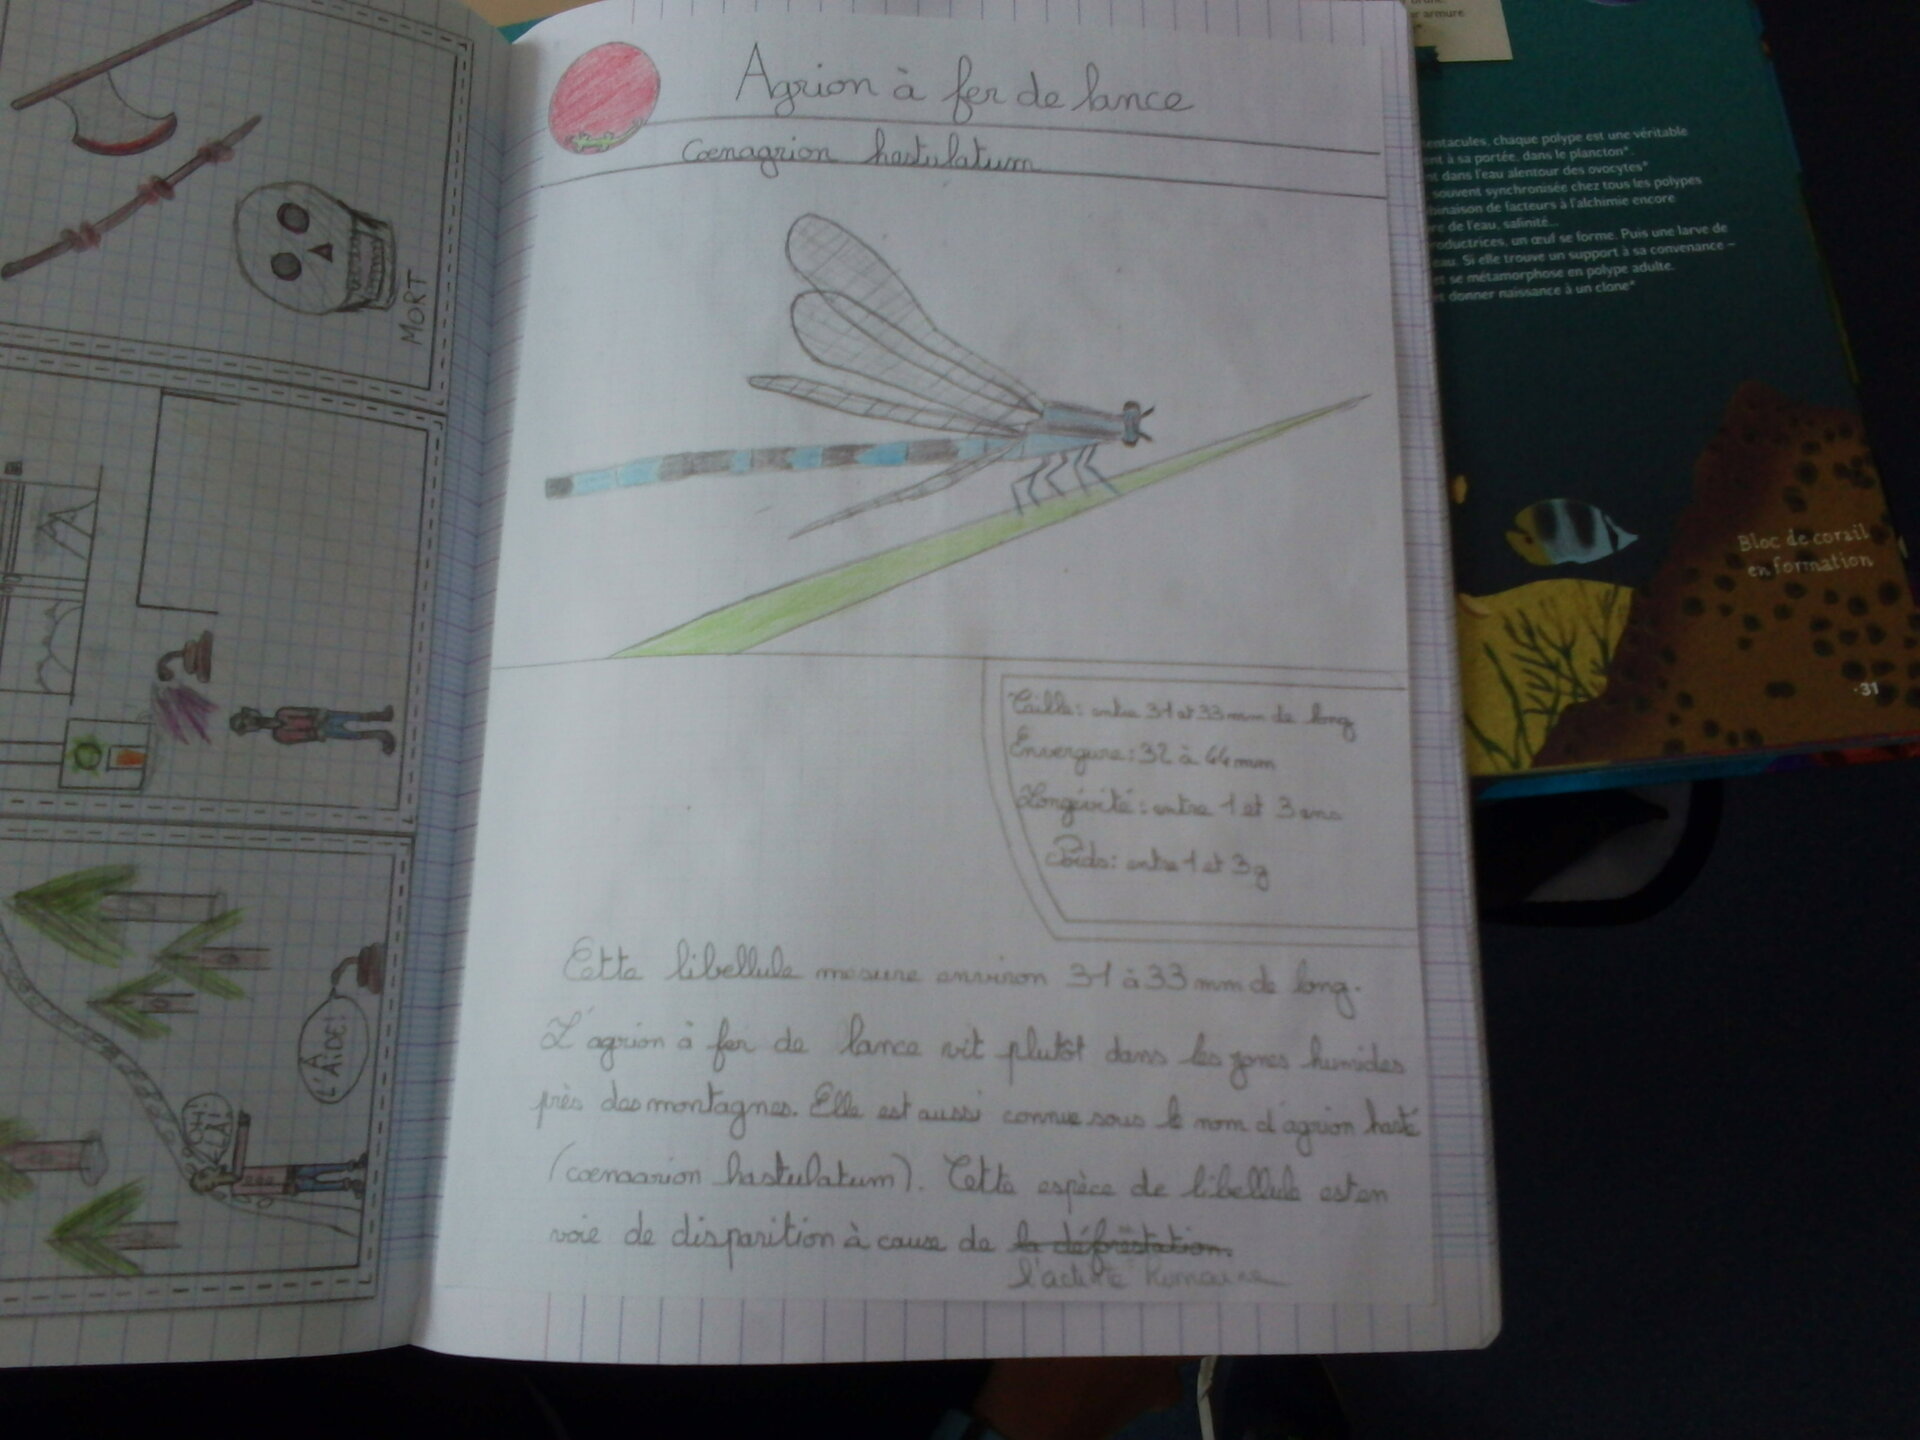 MORT
À L'AIDE!
Agrion à fer de lance
Cœnagrion hastulatum
Taille: entre 31 et 33 mm de long
Envergure: 32 à 44 mm
Longévité: entre 1 et 3 ans
Poids: entre 1 et 3 g
Cette libellule mesure environ 31 à 33 mm de long.
L'agrion à fer de lance vit plutôt dans les zones humides
près des montagnes. Elle est aussi connue sous le nom d'agrion hasté
(cœnagrion hastulatum). Cette espèce de libellule est en
voie de disparition à cause de la déforestation.
l'activité humaine
r armure
entacules, chaque polype est une véritable
nt à sa portée, dans le plancton*.
nt dans l'eau alentour des ovocytes*
souvent synchronisée chez tous les polypes
binaison de facteurs à l'alchimie encore
re de l'eau, salinité...
roductrices, un œuf se forme. Puis une larve de
eau. Si elle trouve un support à sa convenance –
et se métamorphose en polype adulte.
t donner naissance à un clone*
Bloc de corail
en formation
31